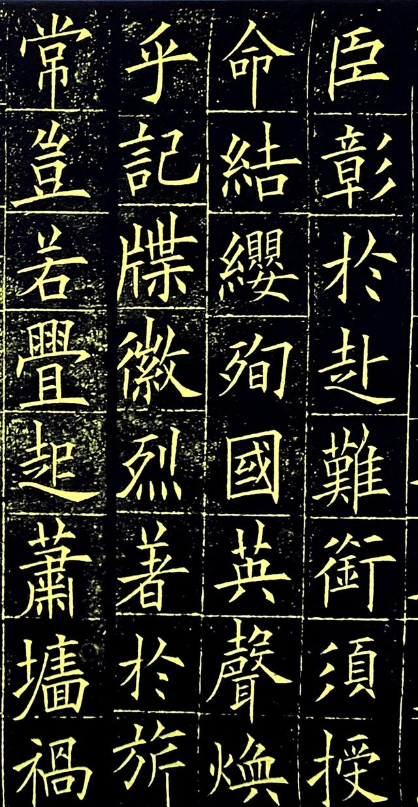 臣彰於赴難銜須授
命結纓殉國英聲煥
乎記牒徽烈著於旂
常豈若疊起蕭墻禍